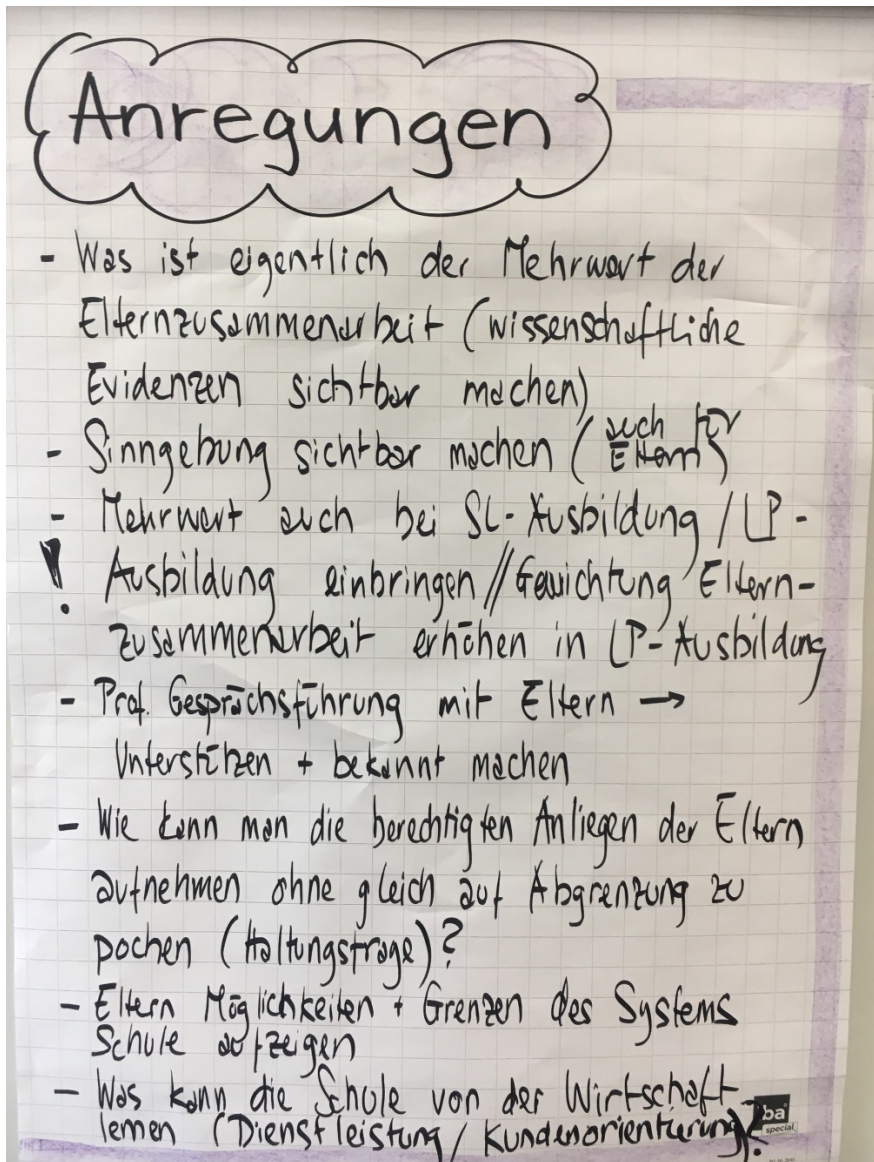 Anregungen
- Was ist eigentlich der Mehrwert der
Elternzusammenarbeit (wissenschaftliche
Evidenzen sichtbar machen)
- Sinngebung sichtbar machen (auch für
Eltern)
- Mehrwert auch bei SL-Ausbildung / LP-
! Ausbildung einbringen // Gewichtung Eltern-
zusammenarbeit erhöhen in LP-Ausbildung
- Prof. Gesprächsführung mit Eltern →
Unterstützen + bekannt machen
- Wie kann man die berechtigten Anliegen der Eltern
aufnehmen ohne gleich auf Abgrenzung zu
pochen (Haltungsfrage)?
- Eltern Möglichkeiten + Grenzen des Systems
Schule aufzeigen
- Was kann die Schule von der Wirtschaft
lernen (Dienstleistung / Kundenorientierung)?
ba
special